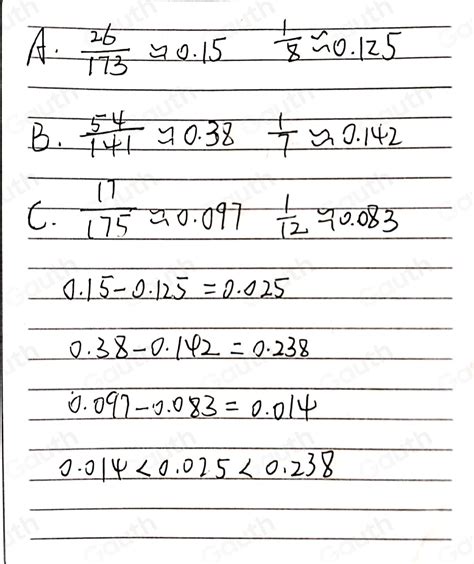 A. 26/173 ≈ 0.15 1/8 ≈ 0.125
B. 54/141 ≈ 0.38 1/7 ≈ 0.142
C. 17/175 ≈ 0.097 1/12 ≈ 0.083
0.15 - 0.125 = 0.025
0.38 - 0.142 = 0.238
0.097 - 0.083 = 0.014
0.014 < 0.025 < 0.238